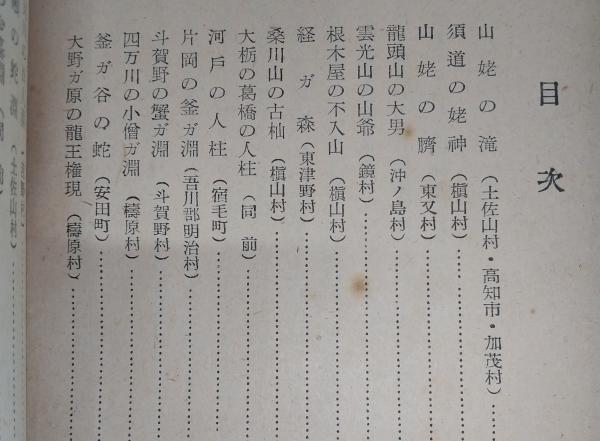 目次
山姥の滝（土佐山村・高知市・加茂村）
須道の姥神（槇山村）
山姥の臍（東又村）
龍頭山の大男（沖ノ島村）
雲光山の山爺（鏡村）
根木屋の不入山（槇山村）
経ガ森（東津野村）
桑川山の古杣（槇山村）
大栃の葛橋の人柱（同前）
河戸の人柱（宿毛町）
片岡の釜ガ淵（吾川郡明治村）
斗賀野の蟹ガ淵（斗賀野村）
四万川の小僧ガ淵（檮原村）
釜ガ谷の蛇（安田町）
大野ガ原の龍王権現（檮原村）